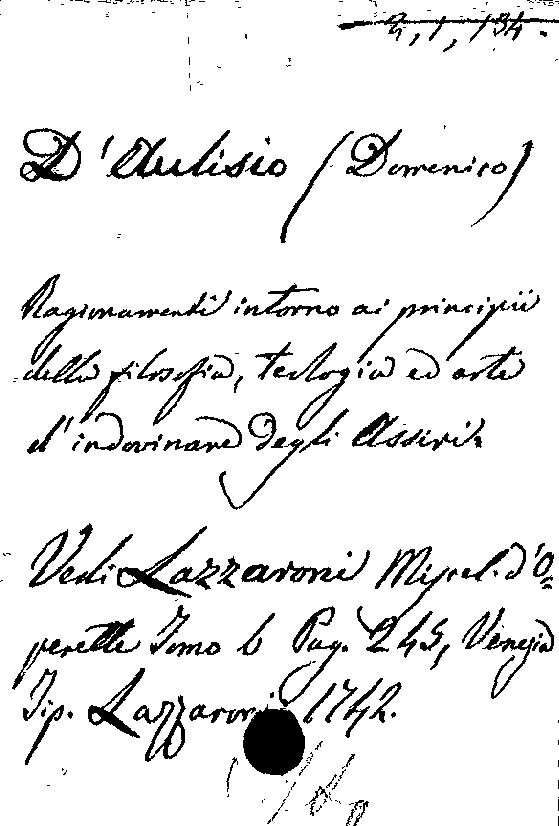 2, 1, 134.
D'Aulisio (Domenico)
Ragionamenti intorno ai principii
della filosofia, teologia ed arte
d'indovinare degli Assirii
Vedi Lazzaroni Miscel. d'O=
perette Tomo 6 Pag. 245, Venezia
Tip. Lazzaroni 1742.